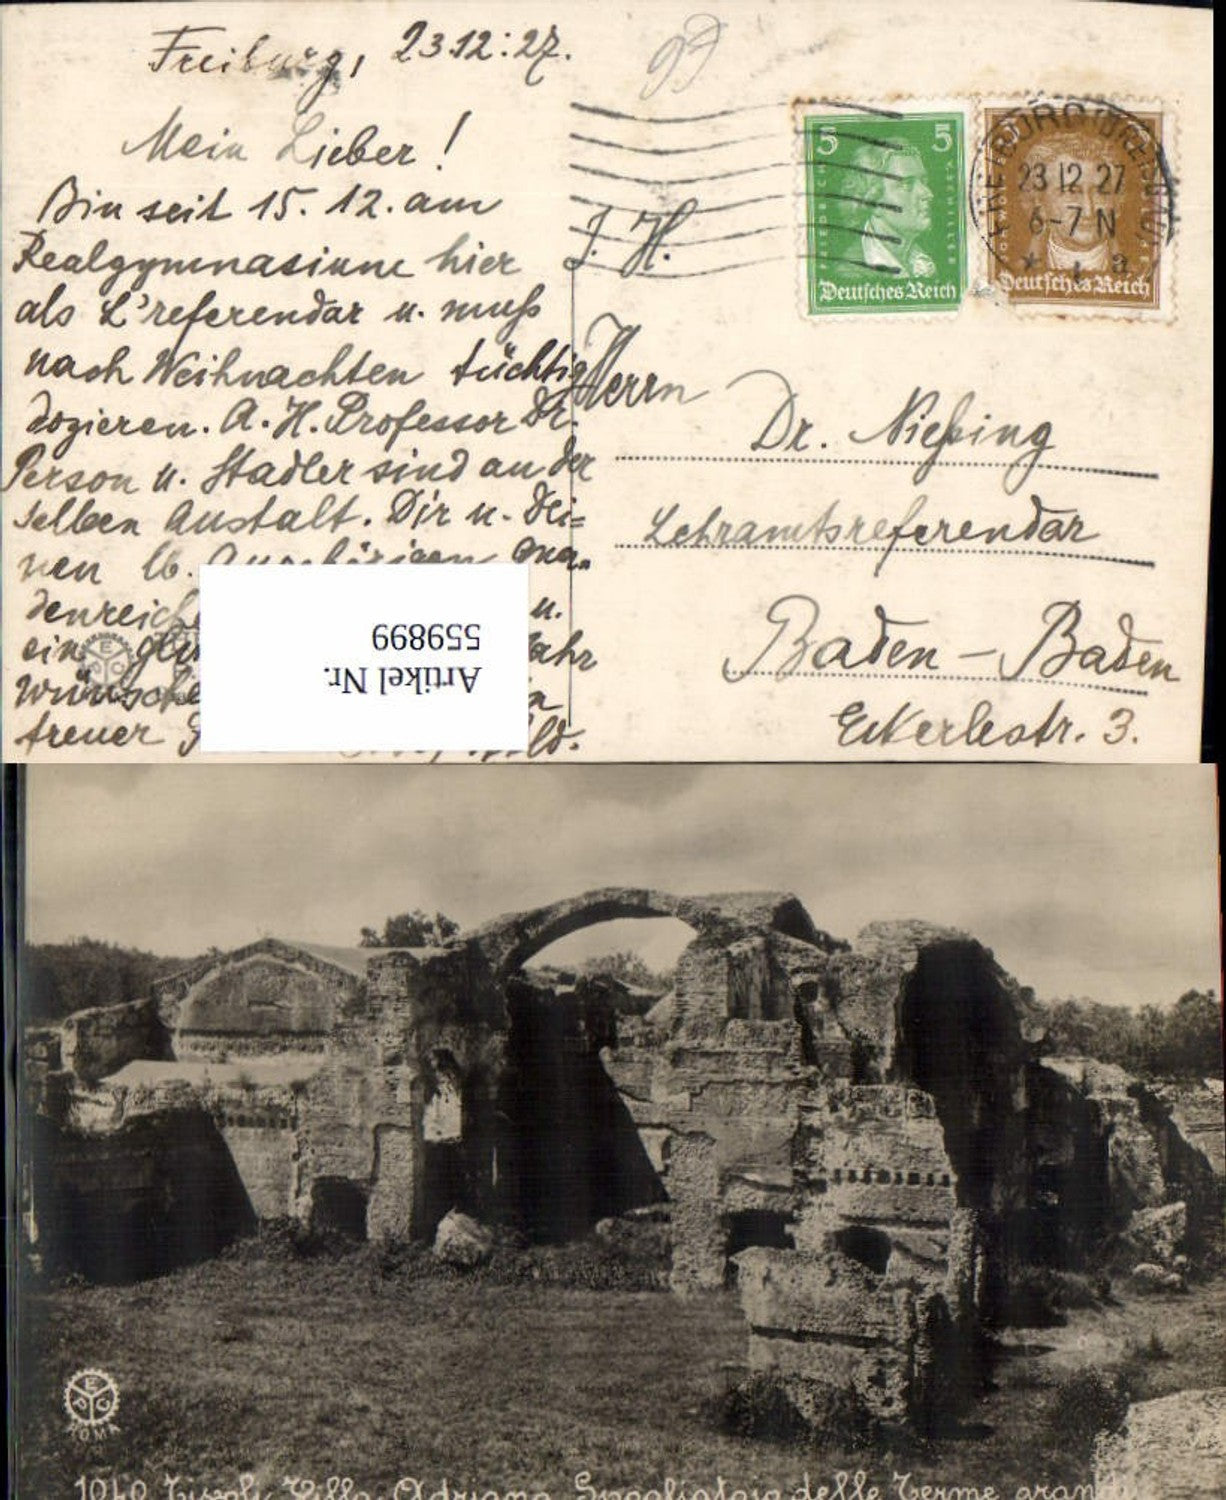 Freiburg, 23.12.27.
Mein Lieber!
Bin seit 15. 12. am
Realgymnasium hier
als L'referendar u. muß
nach Weihnachten tüchtig
dozieren. A. H. Professor Dr.
Person u. Stadler sind an der
selben Anstalt. Dir u. dei=
nen lb. Angehörigen gna-
denreiche u.
ein Jahr
wünsche
treuer
J. H.
Herrn
Dr. Nießing
Lehramtsreferendar
Baden-Baden
Eckerlestr. 3.
5 5
Deutsches Reich
Deutsches Reich
FREIBURG (BREISGAU)
23 12 27
6-7 N
* 1 a
Artikel Nr.
559899
EDG
ROMA
1040 Tivoli Villa Adriana Spogliatoio delle Terme grandi